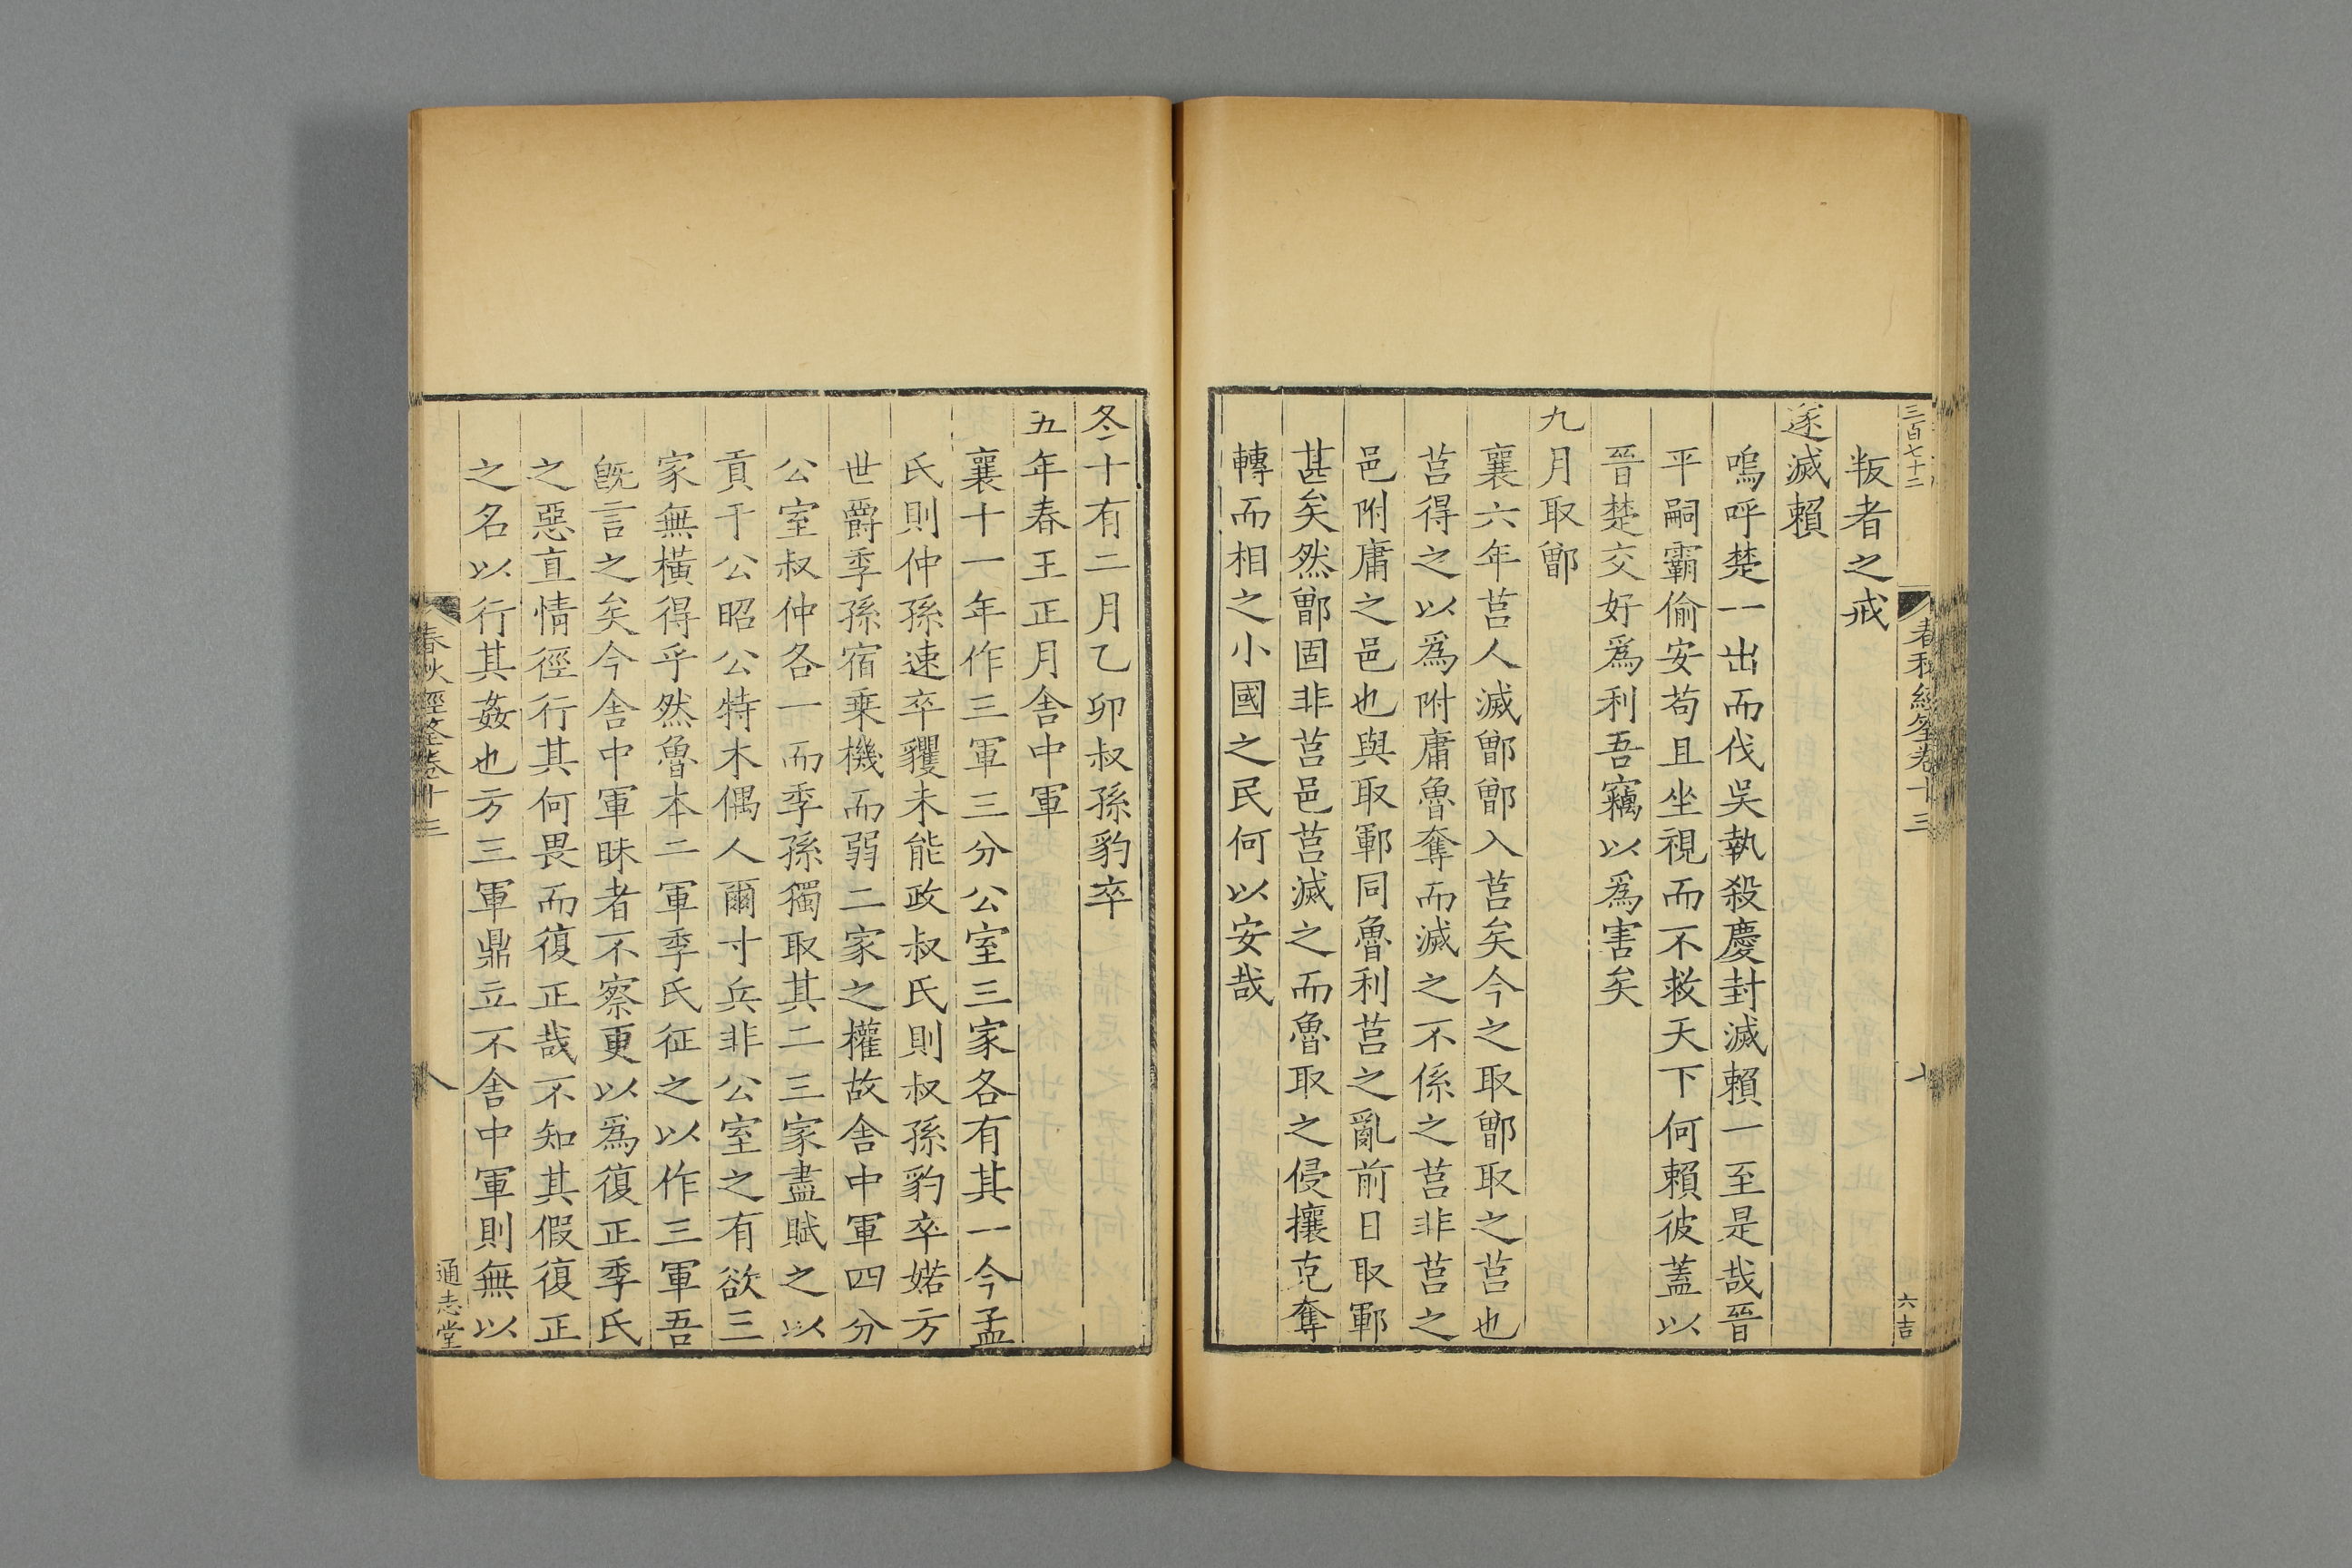 三百七十二
春秋經筌卷十三
六吉
叛者之戒
遂滅賴
嗚呼楚一出而伐吳執殺慶封滅賴一至是哉晉
平嗣霸偷安苟且坐視而不救天下何賴彼蓋以
晉楚交好爲利吾竊以爲害矣
九月取鄫
襄六年莒人滅鄫鄫入莒矣今之取鄫取之莒也
莒得之以爲附庸魯奪而滅之不係之莒非莒之
邑附庸之邑也與取鄆同魯利莒之亂前日取鄆
甚矣然鄫固非莒邑莒滅之而魯取之侵攘克奪
轉而相之小國之民何以安哉
冬十有二月乙卯叔孫豹卒
五年春王正月舍中軍
襄十一年作三軍三分公室三家各有其一今孟
氏則仲孫速卒貜未能政叔氏則叔孫豹卒婼方
世爵季孫宿乗機而弱二家之權故舍中軍四分
公室叔仲各一而季孫獨取其二三家盡賦之以
貢于公昭公特木偶人爾寸兵非公室之有欲三
家無橫得乎然魯本二軍季氏征之以作三軍吾
旣言之矣今舍中軍昧者不察更以爲復正季氏
之惡直情徑行其何畏而復正哉不知其假復正
之名以行其姦也方三軍鼎立不舍中軍則無以
春秋經筌卷十三
八
通志堂